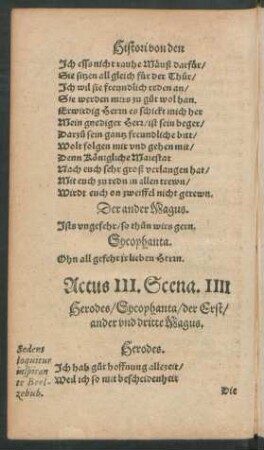 Histori von den
Ich ess nicht rauhe Mäuß darfür/
Sie sitzen all gleich für der Thür/
Ich wil sie freundlich reden an/
Sie werden mirs zu gůt wol han.
Erwirdig Herrn es schickt mich her
Mein gnediger Herr/ist sein beger/
Darzů sein gantz freundliche bitt/
Wolt folgen mir vnd gehen mit/
Denn Königliche Maiestat
Nach euch sehr groß verlangen hat/
Mit euch zu redn in allen trewn/
Wirdt euch on zweiffel nicht gerewn.
Der ander Magus.
Ists vngefehr/so thůn wirs gern.
Sycophanta.
Ohn all gefehr ir lieben Herrn.
Actus III. Scena. IIII
Herodes/Sycophanta/der Erst/
ander vnd dritte Magus.
Herodes.
Sedens
loquitur
inspiran
te Beel-
zebub.
Ich hab gůt hoffnung allezeit/
Weil ich so mit bescheidenheit
Die